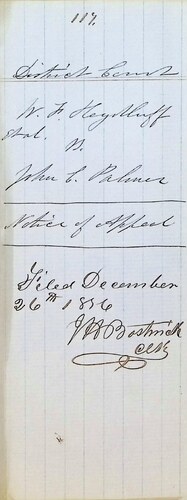 117.
District Court
W. F. Heydluff
et al.
vs.
John C. Palmer
Notice of Appeal
Filed December
26th 1856
J H Bostwick
Clk